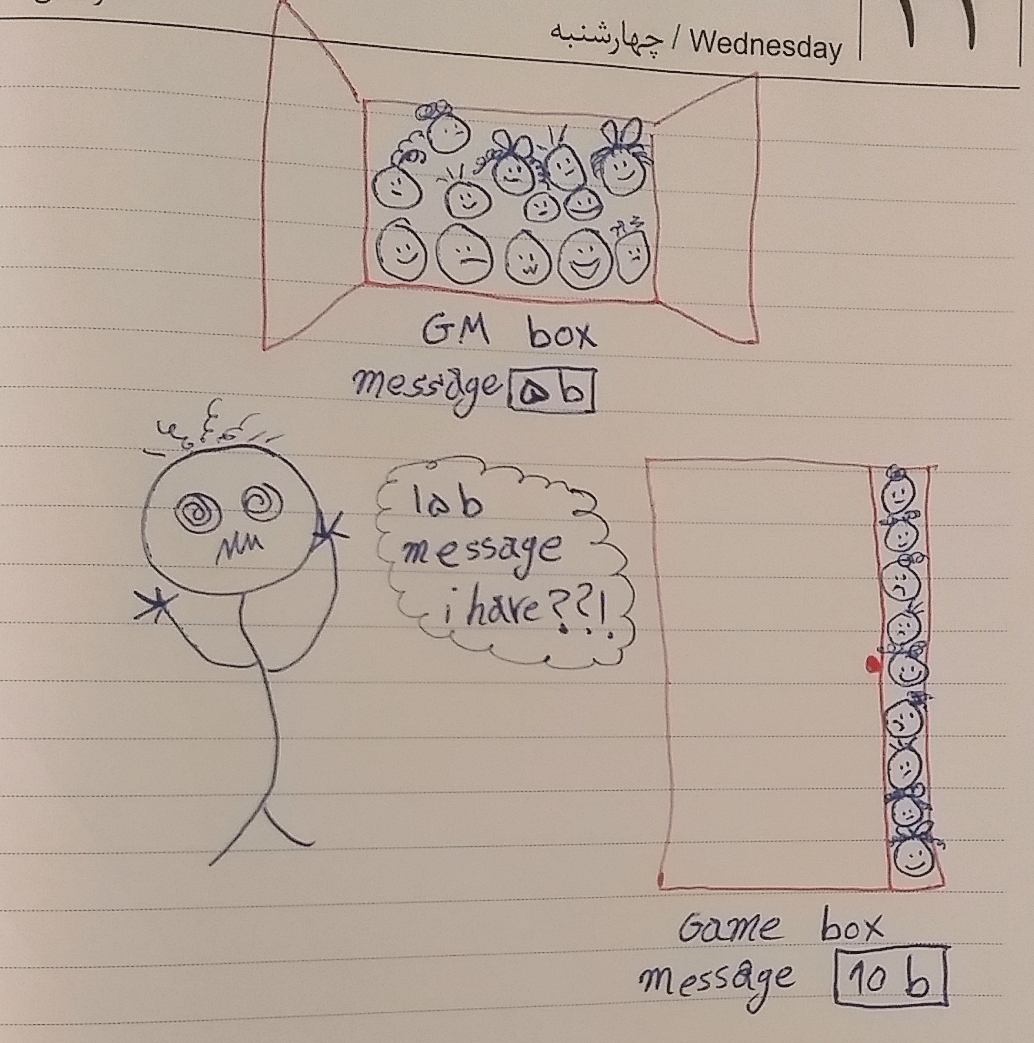 چهارشنبه / Wednesday
GM box
message ab
lab
message
i have??!
Game box
message 10 b